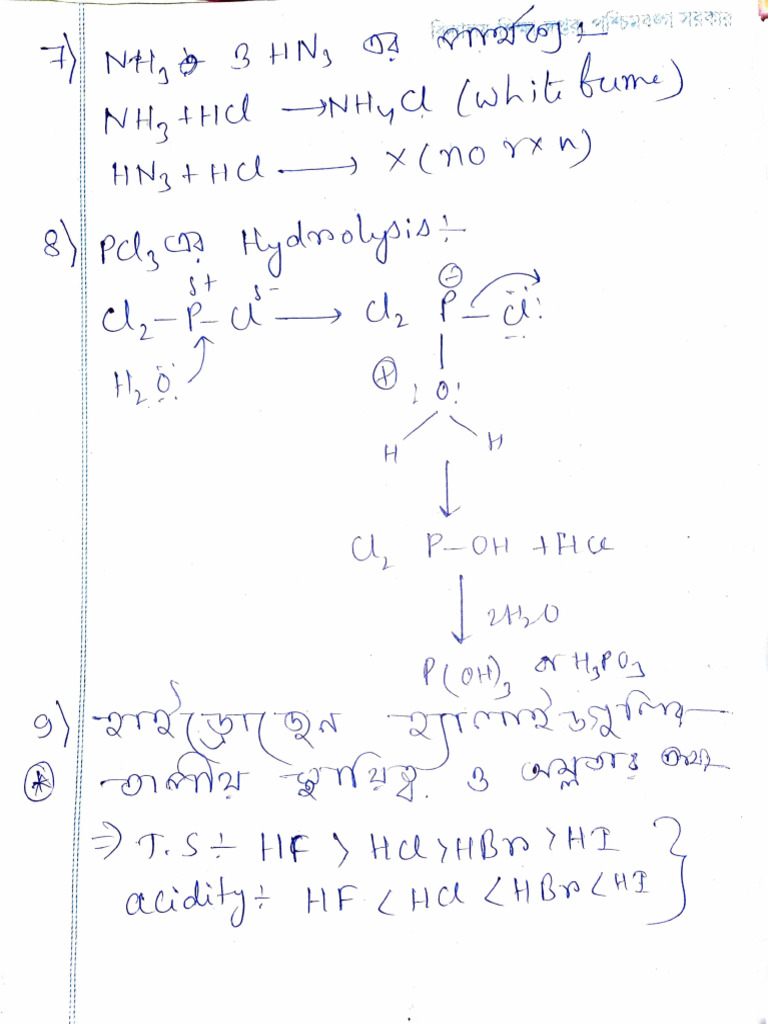 7) NH₃ ও HN₃ এর পার্থক্য :-
NH₃ + HCl → NH₄Cl (white fume)
HN₃ + HCl → × (no rxn)
8) PCl₃ এর Hydrolysis :-
δ+ δ- ⊖
Cl₂–P–Cl → Cl₂ P – Cl:
H₂O: ⊕ :O:
H H
↓
Cl₂ P–OH + HCl
↓ 2H₂O
P(OH)₃ or H₃PO₃
9) হাইড্রোজেন হ্যালাইডগুলির
* তাপীয় স্থায়িত্ব ও অম্লতার
⇒ T.S :- HF > HCl > HBr > HI
acidity :- HF < HCl < HBr < HI }